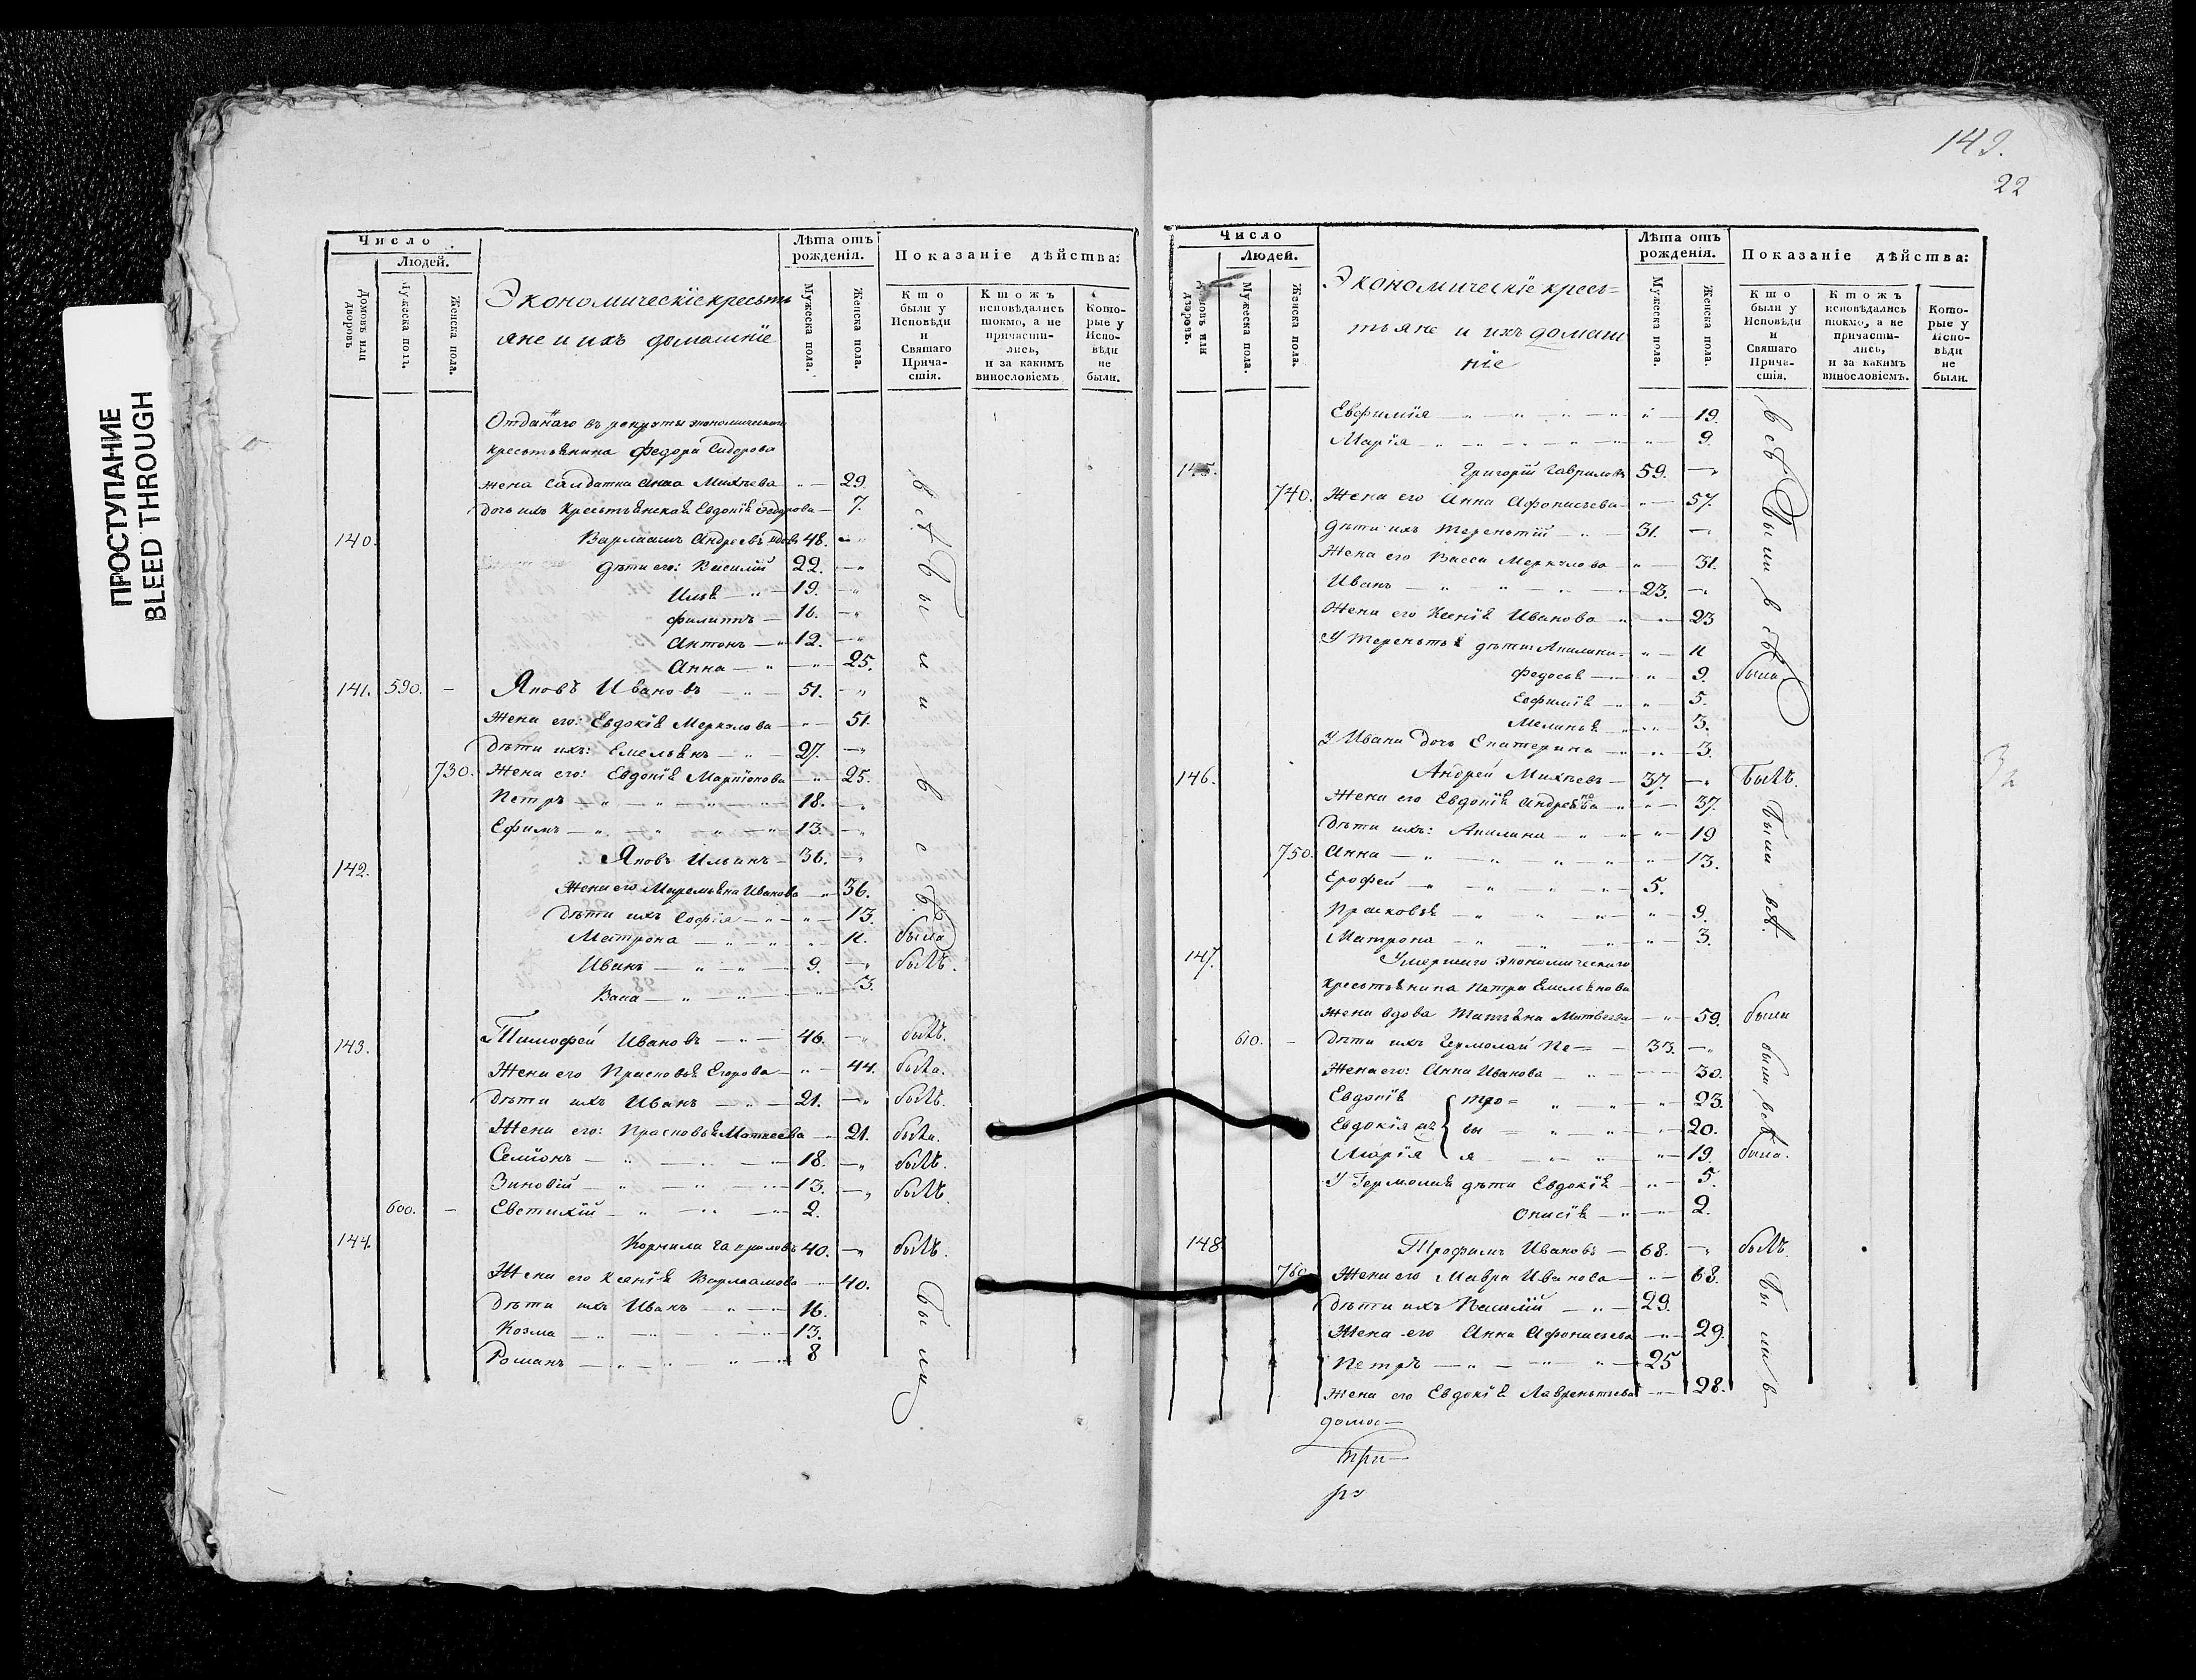 ПРОСТУПАНИЕ
BLEED THROUGH
Число
Людей.
Домовъ или дворовъ
Мужеска полъ.
Женска пола.
Экономическїе кресть
яне и ихъ домашнїе
Лѣта отъ рожденія.
Мужеска пола.
Женска пола.
Показаніе дѣйства:
Кто были у Исповѣди и Святаго Причастія.
Ктожъ исповѣдались токмо, а не причастились, и за какимъ винословіемъ
Которые у Исповѣди не были.
Отданаго въ рекруты экономическаго
крестьянина Федора Сидорова
жена салдатка Анна Михѣева 29.
дочь ихъ крестьянская Евдокїя Федорова 7.
140. Варлаамъ Андреевъ вдовъ 48.
дѣти его: Василїй 22.
Илья 19.
Филиппъ 16.
Антонъ 12.
Анна 25.
всѣ были всѣ
141. 590. Яковъ Ивановъ 51.
Жена его: Евдокїя Меркулова 51.
дѣти ихъ: Емельянъ 27.
730. Жена его: Евдокїя Марпїонова 25.
Петръ 18.
Ефимъ 13.
142. Яковъ Ильинъ 36.
Жена его Маремьяна Иванова 36.
дѣти ихъ Софїя 13.
Матрона 11. была
Иванъ 9. былъ.
Васа 3.
143. Тимофей Ивановъ 46. былъ.
Жена его Прасковья Егорова 44. была.
дѣти ихъ Иванъ 21. былъ.
Жена его: Прасковья Маткеева 21. была.
Семїонъ 18. былъ.
Зиновїй 13. былъ.
600. Евстихїй 2.
144. Корнила Гавриловъ 40. былъ.
Жена его Ксенїя Варлаамова 40.
дѣти ихъ Иванъ 16.
Козма 13.
Романъ 8
были
149.
22
Число
Людей.
Домовъ или дворовъ.
Мужеска пола.
Женска пола.
Экономическїе кресь=
тьяне и ихъ домаш
нїе
Лѣта отъ рожденія.
Мужеска пола.
Женска пола.
Показаніе дѣйства:
Кто были у Исповѣди и Святаго Причастія.
Ктожъ исповѣдались токмо, а не причастились, и за какимъ винословіемъ.
Которые у Исповѣди не были.
Евфимїя 19.
Марїя 9.
145. Григорїй Гавриловъ 59.
740. Жена его Анна Афонасьева 57.
дѣти ихъ Терентїй 31.
Жена его Васса Меркулова 31.
Иванъ 23.
Жена его Ксенїя Иванова 23
У Терентья дѣти: Акилина 11
Федосья 9. была
Евфимїя 5.
Меланья 3.
У Ивана дочь Екатерина 3.
всѣ были всѣ
146. Андрей Михѣевъ 37. Былъ.
Жена его Евдокїя Андреянова 37.
дѣти ихъ: Акилина 19
750. Анна 13.
Ерофей 5.
Прасковья 9.
Матрона 3.
были всѣ.
147. Умершаго экономическаго
крестьянина Петра Емельянова
жена вдова Татьяна Матвеева 59. была
610. дѣти ихъ Гермолай Пе= 33.
Жена его: Анна Иванова 30.
Евдокїя тро= 23.
Евдокїя ихъ вы= 20.
Марїя я 19. была.
У Гермолая дѣти Евдокїя 5.
Онисїя 2.
были всѣ
148. Трофимъ Ивановъ 68. былъ.
760. Жена его Мавра Иванова 68.
дѣти ихъ Василїй 29.
Жена его Анна Афонасьева 29.
Петръ 25
жена его Евдокїя Лаврентьева 28.
были в